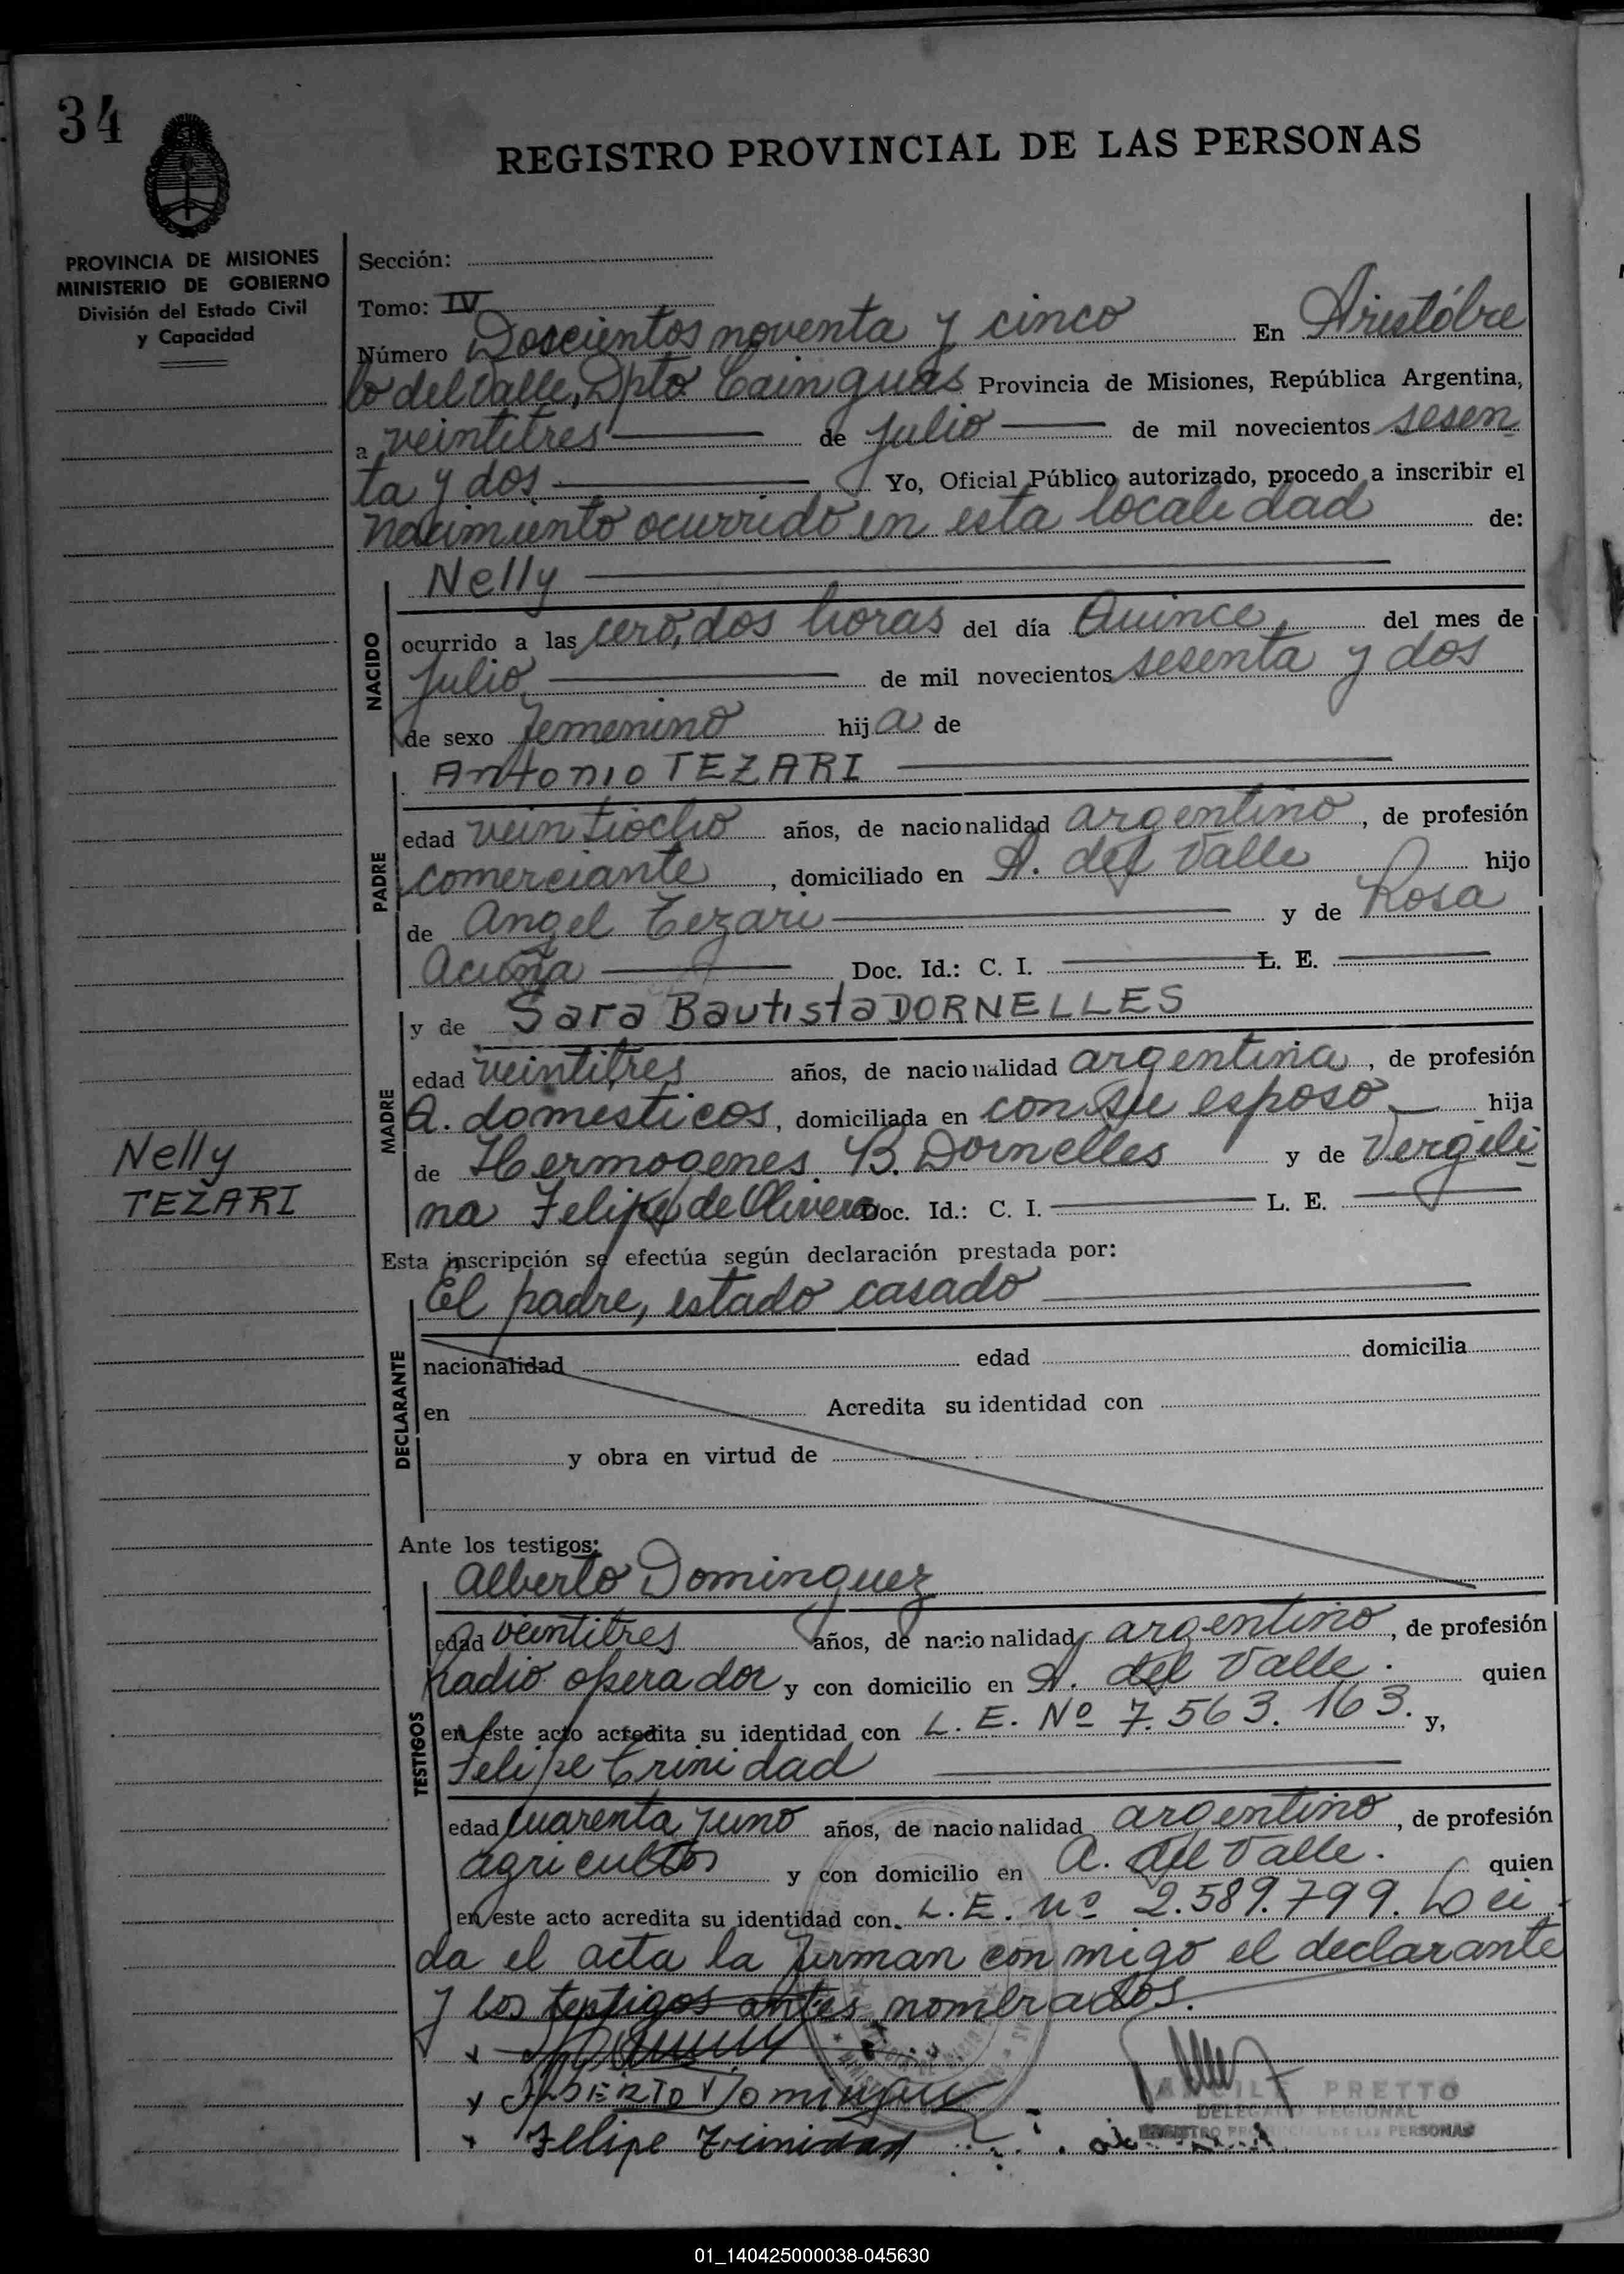 34
REGISTRO PROVINCIAL DE LAS PERSONAS
PROVINCIA DE MISIONES
MINISTERIO DE GOBIERNO
División del Estado Civil
y Capacidad
Sección:
Tomo: IV
Número Doscientos noventa y cinco En Aristóbre
lo del Valle, Dpto Cainguás Provincia de Misiones, República Argentina,
a veintitres de julio de mil novecientos sesen
ta y dos Yo, Oficial Público autorizado, procedo a inscribir el
nacimiento ocurrido en esta localidad de:
Nelly
NACIDO
ocurrido a las cero, dos horas del día Quince del mes de
julio de mil novecientos sesenta y dos
de sexo femenino hija de
Antonio TEZARI
PADRE
edad veintiocho años, de nacionalidad argentino, de profesión
comerciante, domiciliado en A. del Valle hijo
de Angel Tezari y de Rosa
Acuña Doc. Id.: C. I. L. E.
y de Sara Bautista DORNELLES
MADRE
edad veintitres años, de nacionalidad argentina, de profesión
Q. domesticos, domiciliada en con su esposo hija
de Hermogenes B. Dornelles y de Vergili
na Felipe de Olivera Doc. Id.: C. I. L. E.
Nelly
TEZARI
Esta inscripción se efectúa según declaración prestada por:
El padre, estado casado
DECLARANTE
nacionalidad edad domicilia
en Acredita su identidad con
y obra en virtud de
Ante los testigos:
Alberto Dominguez
TESTIGOS
edad veintitres años, de nacionalidad argentino, de profesión
Radio operador y con domicilio en A. del Valle. quien
en este acto acredita su identidad con L. E. Nº 7.563.163. y,
Felipe Trinidad
edad cuarenta y uno años, de nacionalidad argentino, de profesión
agricultor y con domicilio en A. del Valle. quien
en este acto acredita su identidad con L. E. Nº 2.589.799. Lei
da el acta la firman conmigo el declarante
y los testigos antes nombrados.
Alberto Dominguez
Felipe Trinidad
PRETTO
DELEGADO REGIONAL
REGISTRO PROVINCIAL DE LAS PERSONAS
01_140425000038-045630